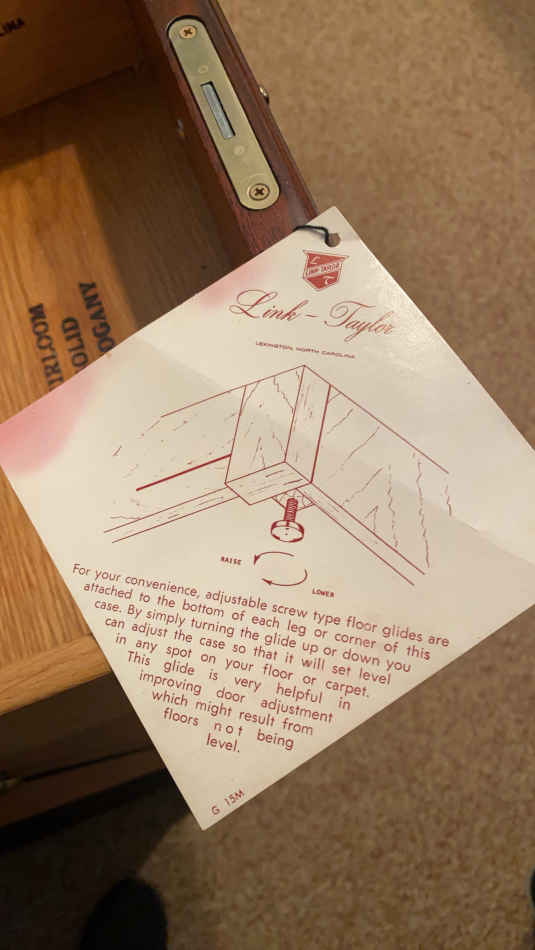 LINK-TAYLOR
Link - Taylor
LEXINGTON, NORTH CAROLINA
RAISE
LOWER
For your convenience, adjustable screw type floor glides are
attached to the bottom of each leg or corner of this
case. By simply turning the glide up or down you
can adjust the case so that it will set level
in any spot on your floor or carpet.
This glide is very helpful in
improving door adjustment
which might result from
floors not being
level.
G 15M